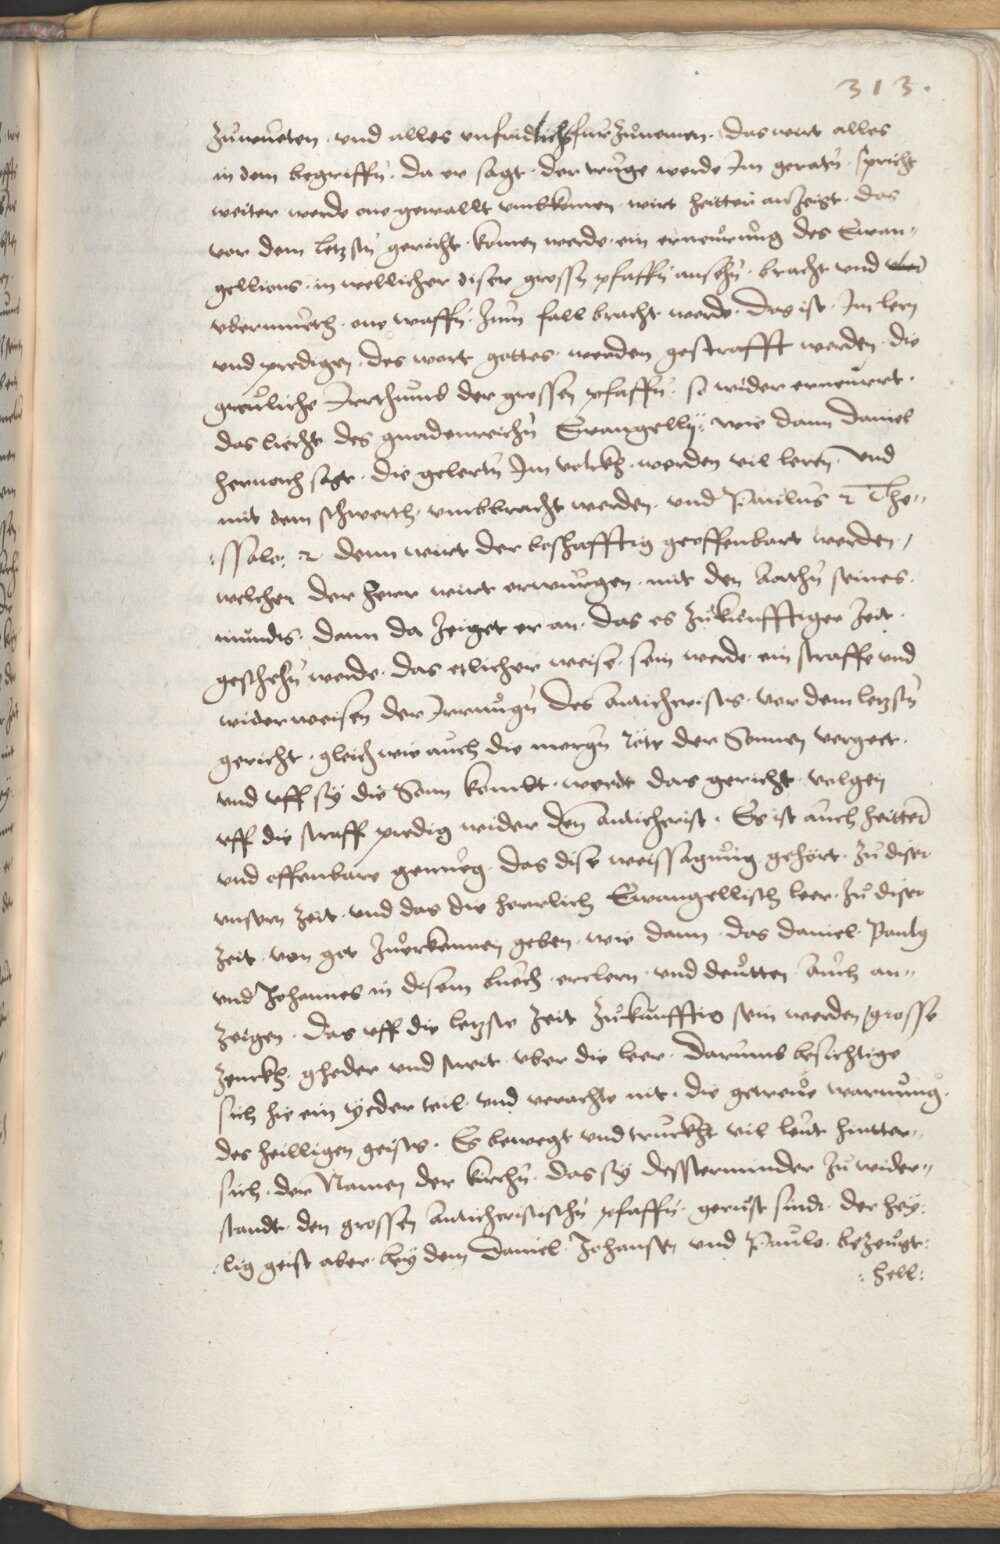 313.
zuwueten. vnd alles vnfridlichs fur zunemen. Das wirt alles
in dem begriffen. da er sagt. der truge werde Im geraten. spricht
weiter werde one gewallt vmbkomen. wirt heitter anzeigt. das
vor dem letzsten gericht. komen werde. ein ernewrung des Ewan¬
gellions. in wellicher diser grossen pfaffen ansehen. bracht vnd
vbermueth. one waffen. zum fall bracht werde. Das ist. Im leen
vnd predigen. des wort gottes. werden gestrafft werden. die
greuliche Irrthumb der grossen pfaffen. so wider ernewert.
das liecht des gnadenreichen Ewangelly. wie dann Daniel
hernach sagt. die gelerten Im volckh. werden vil leren. vnd
mit dem schwerth. vmbbracht werden. vnd Paulus 2 The¬
ssalo. 2. denn wirt der boshafftig geoffenbart werden.
welchen der herr wirt erwurgen. mit den Aathen seines
mundts. dann da zeiget er an. das es zukunfftiger zeit.
geschehen werde. das etlicher weise. sein werde. ein straffe vnd
widerweisen der Irrungen des Antichrists. vor dem letzsten
gericht. gleich wie auch die morgen röte der Sonnen vorgeet.
vnd vff sy die Sonn kombt. werdt das gericht. volgen
vff die straff predig wider den Antichrist. Es ist auch heitter
vnd offenbare genueg. das dise weissagung gehört. zu diser
vnsern zeit. vnd das die herrlich Ewangellisch leer. zu diser
zeit. von got zuerkennen geben. wie dann. das Daniel Paulus
vnd Johannes in disem buech. erclern. vnd deutten. Auch an¬
zeigen. Das vff die letzste zeit zukunfftig sein werden grosse
zenckh. gheder vnd streit. vber die leer. Darumb besichtige
sich hie ein yeder teil. vnd verachte nit. die getrewe warnung.
des heilligen geists. Es bewegt vnd truckht vil leut hintter¬
sich. der Namen der kirchen. das sy desterminder zu wider¬
standt. den grossen Antichristischen pfaffen. gerust sindt. der hey¬
lig geist aber. bey dem Daniel. Johansen vnd Paulo. bezeugt:
: hell: